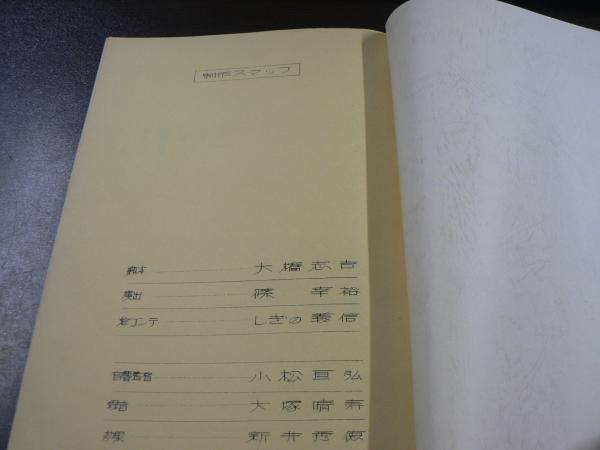 制作スタッフ
脚本 大橋志吉
演出 篠 幸裕
絵コンテ しぎの義信
音響監督 小松亘弘
録音 大塚晴寿
効果 新井秀徳